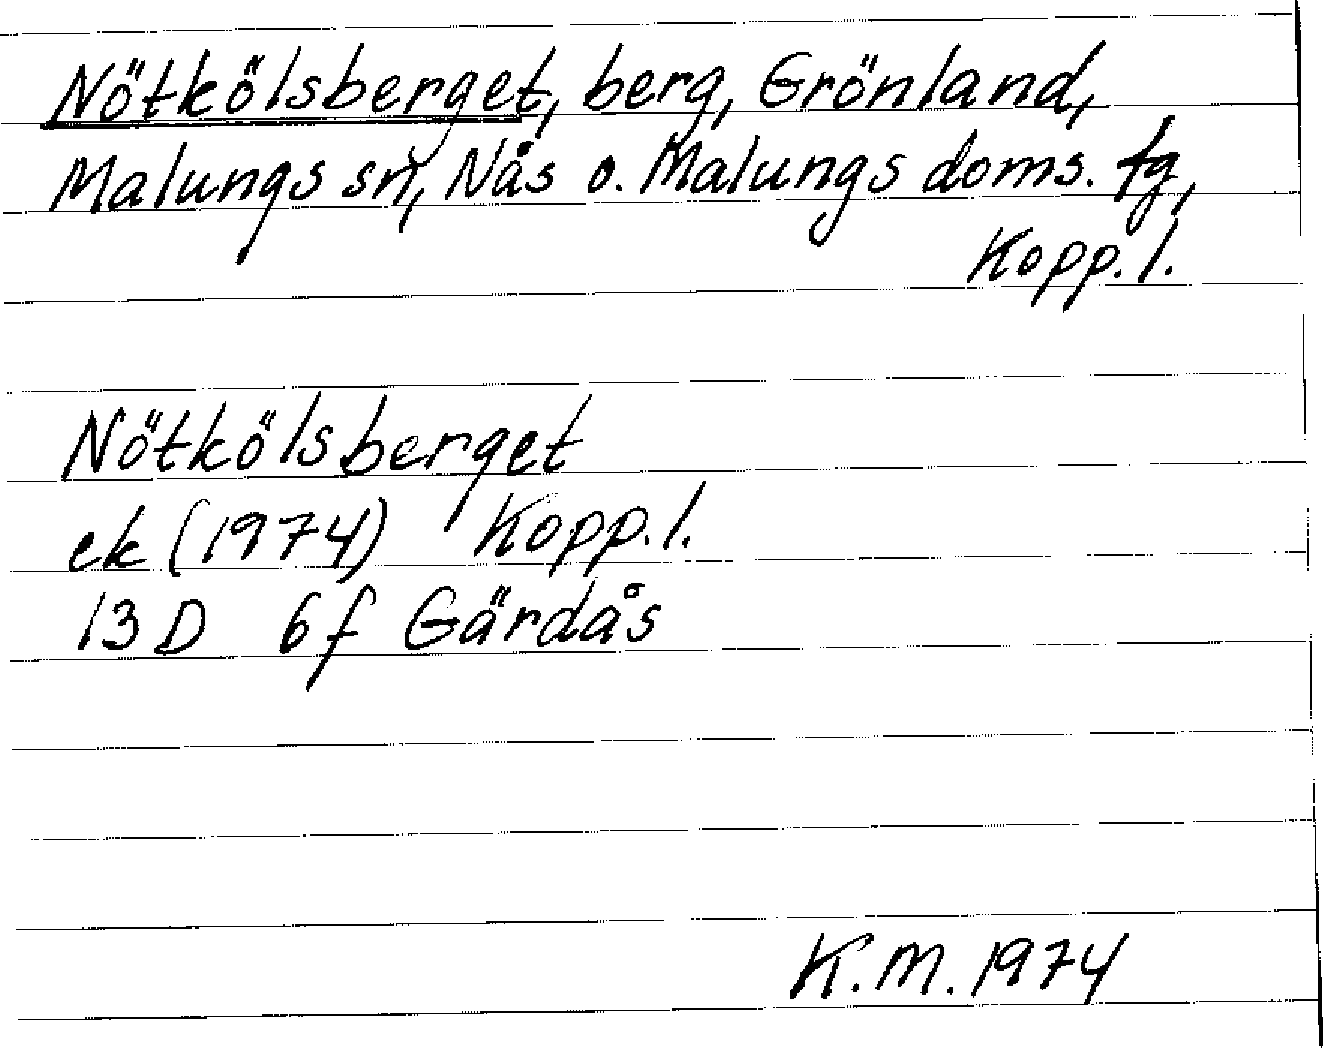 Nötkölsberget, berg, Grönland,
Malungs sn, Nås o. Malungs doms. tg,
Kopp. l.
Nötkölsberget
ek (1974) Kopp. l.
13 D 6f Gärdås
K. M. 1974